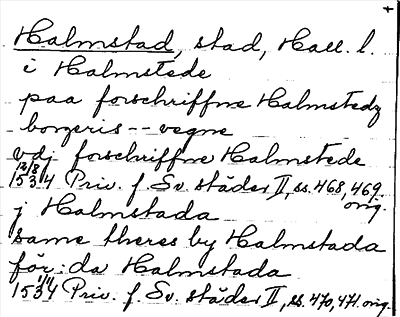 Halmstad, stad, Hall. l.
i Halmstede
paa forschriffne Halmstedz
borgeris -- vegne
vdj forschriffne Halmstede
12/8 1534 Priv. f. Sv. städer II, ss. 468, 469 orig.
j Halmstada
same theres by Halmstada
för: da Halmstada
1534 Priv. f. Sv. städer II, ss. 470, 471. orig.